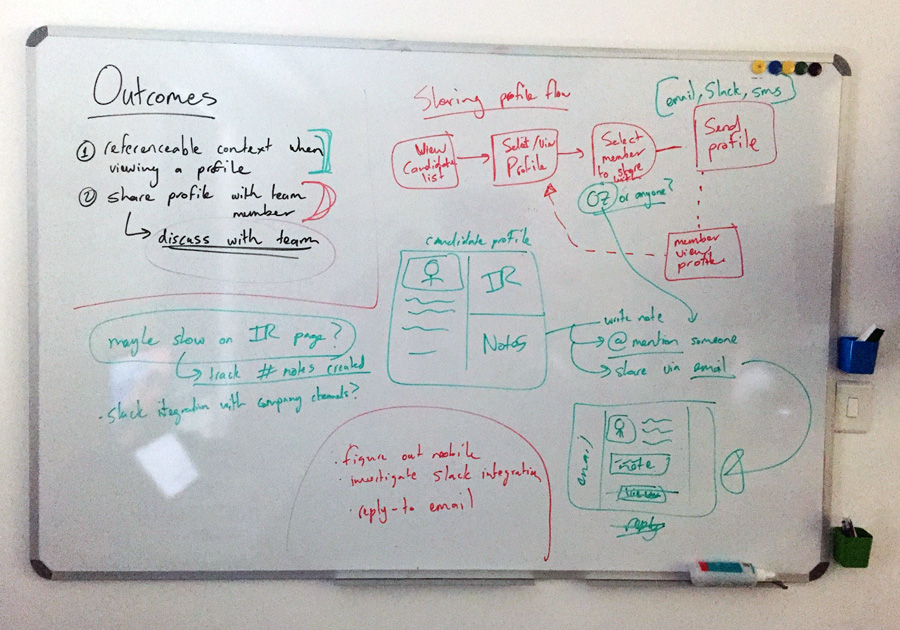 Outcomes
① referenceable context when
viewing a profile
② share profile with team
member
discuss with team
Sharing profile flow
View
Candidate
list
Select/View
Profile
Select
member
to share
with
email, Slack, sms
Send
profile
OZ or anyone?
member
view
profile
candidate profile
IR
Notes
write note
@ mention someone
share via email
maybe show on IR page?
track # notes created
· Slack integration with company channels?
email
note
reply
· figure out mobile
· investigate Slack integration
· reply-to email